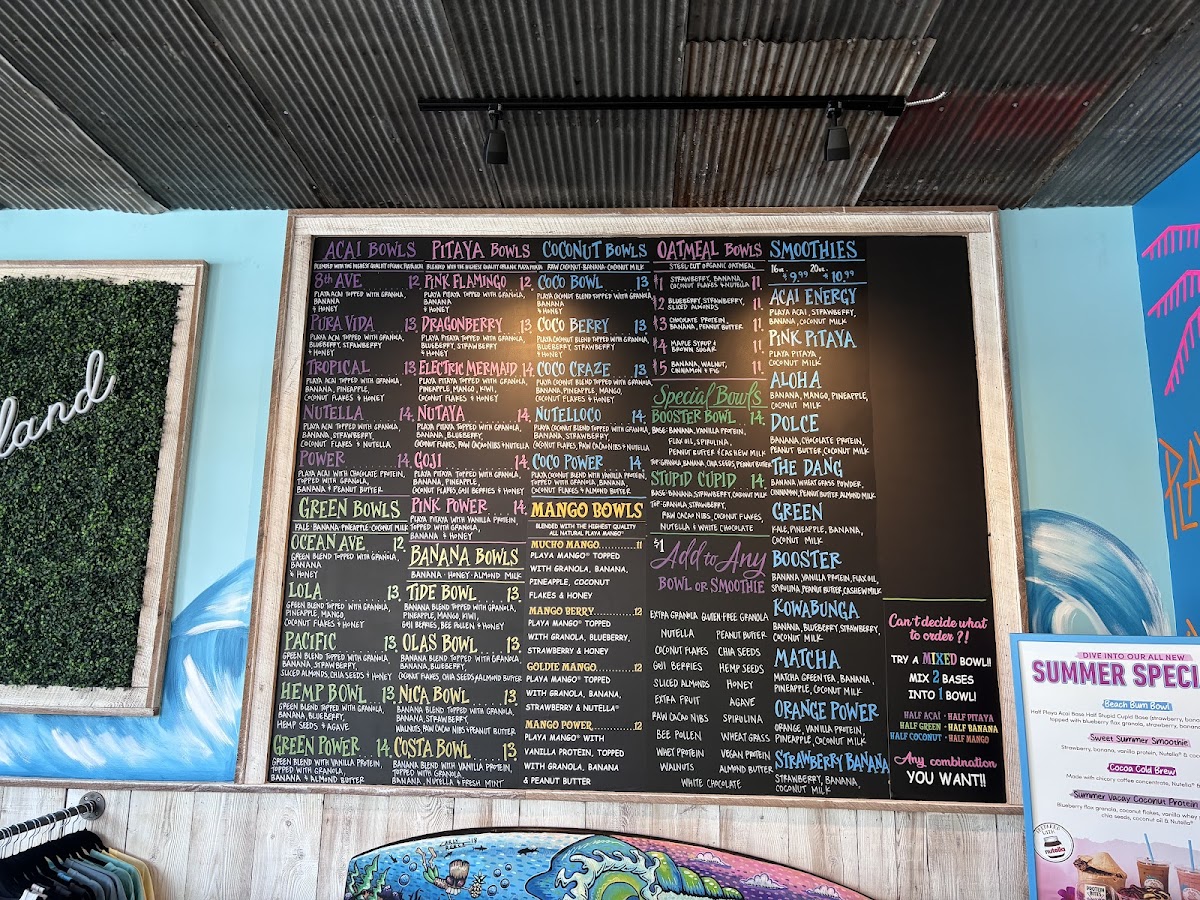 land
ACAI BOWLS
BLENDED WITH THE HIGHEST QUALITY ORGANIC PLAYA ACAI
8th AVE 12.
PLAYA ACAI TOPPED WITH GRANOLA,
BANANA
& HONEY
PURA VIDA 13.
PLAYA ACAI TOPPED WITH GRANOLA,
BLUEBERRY, STRAWBERRY
& HONEY
TROPICAL 13.
PLAYA ACAI TOPPED WITH GRANOLA,
BANANA, PINEAPPLE,
COCONUT FLAKES & HONEY
NUTELLA 14.
PLAYA ACAI TOPPED WITH GRANOLA,
BANANA, STRAWBERRY,
COCONUT FLAKES & NUTELLA
POWER 14.
PLAYA ACAI WITH CHOCLATE PROTEIN,
TOPPED WITH GRANOLA,
BANANA & PEANUT BUTTER
GREEN BOWLS
KALE·BANANA·PINEAPPLE·COCONUT MILK
OCEAN AVE 12.
GREEN BLEND TOPPED WITH GRANOLA,
BANANA
& HONEY
LOLA 13.
GREEN BLEND TOPPED WITH GRANOLA,
PINEAPPLE, MANGO,
COCONUT FLAKES & HONEY
PACIFIC 13.
GREEN BLEND TOPPED WITH GRANOLA,
BANANA, STRAWBERRY,
SLICED ALMONDS, CHIA SEEDS & HONEY
HEMP BOWL 13.
GREEN BLEND TOPPED WITH GRANOLA,
BANANA, BLUEBERRY,
HEMP SEEDS & AGAVE
GREEN POWER 14.
GREEN BLEND WITH VANILLA PROTEIN,
TOPPED WITH GRANOLA,
BANANA & ALMOND BUTTER
PITAYA BOWLS
BLENDED WITH THE HIGHEST QUALITY ORGANIC PLAYA PITAYA
PINK FLAMINGO 12.
PLAYA PITAYA TOPPED WITH GRANOLA,
BANANA
& HONEY
DRAGONBERRY 13.
PLAYA PITAYA TOPPED WITH GRANOLA,
BLUEBERRY, STRAWBERRY
& HONEY
ELECTRIC MERMAID 14.
PLAYA PITAYA TOPPED WITH GRANOLA,
PINEAPPLE, MANGO, KIWI,
COCONUT FLAKES & HONEY
NUTAYA 14.
PLAYA PITAYA TOPPED WITH GRANOLA,
BANANA, BLUEBERRY,
COCONUT FLAKES, RAW CACAO NIBS & NUTELLA
GOJI 14.
PLAYA PITAYA TOPPED WITH GRANOLA,
BANANA, PINEAPPLE,
COCONUT FLAKES, GOJI BERRIES & HONEY
PINK POWER 14.
PLAYA PITAYA WITH VANILLA PROTEIN,
TOPPED WITH GRANOLA,
BANANA & HONEY
BANANA BOWLS
BANANA·HONEY·ALMOND MILK
TIDE BOWL 13.
BANANA BLEND TOPPED WITH GRANOLA,
PINEAPPLE, MANGO, KIWI,
GOJI BERRIES, BEE POLLEN & HONEY
OLAS BOWL 13.
BANANA BLEND TOPPED WITH GRANOLA,
BANANA, BLUEBERRY,
COCONUT FLAKES, CHIA SEEDS, ALMOND BUTTER
NICA BOWL 13.
BANANA BLEND TOPPED WITH GRANOLA,
BANANA, STRAWBERRY,
WALNUTS, RAW CACAO NIBS & PEANUT BUTTER
COSTA BOWL 13.
BANANA BLEND WITH VANILLA PROTEIN,
TOPPED WITH GRANOLA,
BANANA, NUTELLA & FRESH MINT
COCONUT BOWLS
RAW COCONUT·BANANA·COCONUT MILK
COCO BOWL 13
PLAYA COCONUT BLEND TOPPED WITH GRANOLA,
BANANA
& HONEY
COCO BERRY 13
PLAYA COCONUT BLEND TOPPED WITH GRANOLA,
BLUEBERRY, STRAWBERRY
& HONEY
COCO CRAZE 13.
PLAYA COCONUT BLEND TOPPED WITH GRANOLA,
BANANA, PINEAPPLE, MANGO,
COCONUT FLAKES & HONEY
NUTELLOCO 14.
PLAYA COCONUT BLEND TOPPED WITH GRANOLA,
BANANA, STRAWBERRY,
COCONUT FLAKES, RAW CACAO NIBS & NUTELLA
COCO POWER 14.
PLAYA COCONUT BLEND WITH VANILLA PROTEIN,
TOPPED WITH GRANOLA, BANANA,
COCONUT FLAKES & ALMOND BUTTER
MANGO BOWLS
BLENDED WITH THE HIGHEST QUALITY
ALL NATURAL PLAYA MANGO®
MUCHO MANGO..........11
PLAYA MANGO® TOPPED
WITH GRANOLA, BANANA,
PINEAPPLE, COCONUT
FLAKES & HONEY
MANGO BERRY..........12
PLAYA MANGO® TOPPED
WITH GRANOLA, BLUEBERRY,
STRAWBERRY & HONEY
GOLDIE MANGO..........12
PLAYA MANGO® TOPPED
WITH GRANOLA, BANANA,
STRAWBERRY & NUTELLA®
MANGO POWER..........12
PLAYA MANGO® WITH
VANILLA PROTEIN, TOPPED
WITH GRANOLA, BANANA
& PEANUT BUTTER
OATMEAL BOWLS
STEEL CUT ORGANIC OATMEAL
#1 STRAWBERRY, BANANA, COCONUT FLAKES & NUTELLA 11.
#2 BLUEBERRY, STRAWBERRY, SLICED ALMONDS 11.
#3 CHOCOLATE PROTEIN, BANANA, PEANUT BUTTER 11.
#4 MAPLE SYRUP & BROWN SUGAR 11.
#5 BANANA, WALNUT, CINNAMON & FIG 11.
Special Bowls
BOOSTER BOWL 14.
BASE: BANANA, VANILLA PROTEIN,
FLAX OIL, SPIRULINA,
PEANUT BUTTER & CASHEW MILK
TOP: GRANOLA, BANANA, CHIA SEEDS, PEANUT BUTTER
STUPID CUPID 14.
BASE: BANANA, STRAWBERRY, COCONUT MILK
TOP: GRANOLA, STRAWBERRY,
RAW CACAO NIBS, COCONUT FLAKES,
NUTELLA & WHITE CHOCOLATE
$1 Add to Any
BOWL OR SMOOTHIE
EXTRA GRANOLA GLUTEN-FREE GRANOLA
NUTELLA PEANUT BUTTER
COCONUT FLAKES CHIA SEEDS
GOJI BERRIES HEMP SEEDS
SLICED ALMONDS HONEY
EXTRA FRUIT AGAVE
RAW CACAO NIBS SPIRULINA
BEE POLLEN WHEAT GRASS
WHEY PROTEIN VEGAN PROTEIN
WALNUTS ALMOND BUTTER
WHITE CHOCOLATE
SMOOTHIES
16oz. $9.99 20oz. $10.99
ACAI ENERGY
PLAYA ACAI, STRAWBERRY,
BANANA, COCONUT MILK
PINK PITAYA
PLAYA PITAYA,
COCONUT MILK
ALOHA
BANANA, MANGO, PINEAPPLE,
COCONUT MILK
DOLCE
BANANA, CHOCOLATE PROTEIN,
PEANUT BUTTER, COCONUT MILK
THE DANG
BANANA, WHEAT GRASS POWDER,
CINNAMON, PEANUT BUTTER, ALMOND MILK
GREEN
KALE, PINEAPPLE, BANANA,
COCONUT MILK
BOOSTER
BANANA, VANILLA PROTEIN, FLAX OIL,
SPIRULINA, PEANUT BUTTER, CASHEW MILK
KOWABUNGA
BANANA, BLUEBERRY, STRAWBERRY,
COCONUT MILK
MATCHA
MATCHA GREEN TEA, BANANA,
PINEAPPLE, COCONUT MILK
ORANGE POWER
ORANGE, VANILLA PROTEIN,
PINEAPPLE, COCONUT MILK
STRAWBERRY BANANA
STRAWBERRY, BANANA,
COCONUT MILK
Can't decide what
to order?!
TRY A MIXED BOWL!!
MIX 2 BASES
INTO 1 BOWL!
HALF ACAI · HALF PITAYA
HALF GREEN · HALF BANANA
HALF COCONUT · HALF MANGO
Any combination
YOU WANT!!
DIVE INTO OUR ALL NEW
SUMMER SPECI
Beach Bum Bowl
Half Playa Acai Base Half Stupid Cupid Base (strawberry, bana
topped with blueberry flax granola, strawberry, bana
Sweet Summer Smoothie
Strawberry, banana, vanilla protein, Nutella® & coco
Cocoa Cold Brew
Made with chicory coffee concentrate, Nutella®
Summer Vacay Coconut Protein
Blueberry flax granola, coconut flakes, vanilla whey
chia seeds, coconut oil & Nutella®
nutella
PROTEIN
BITES